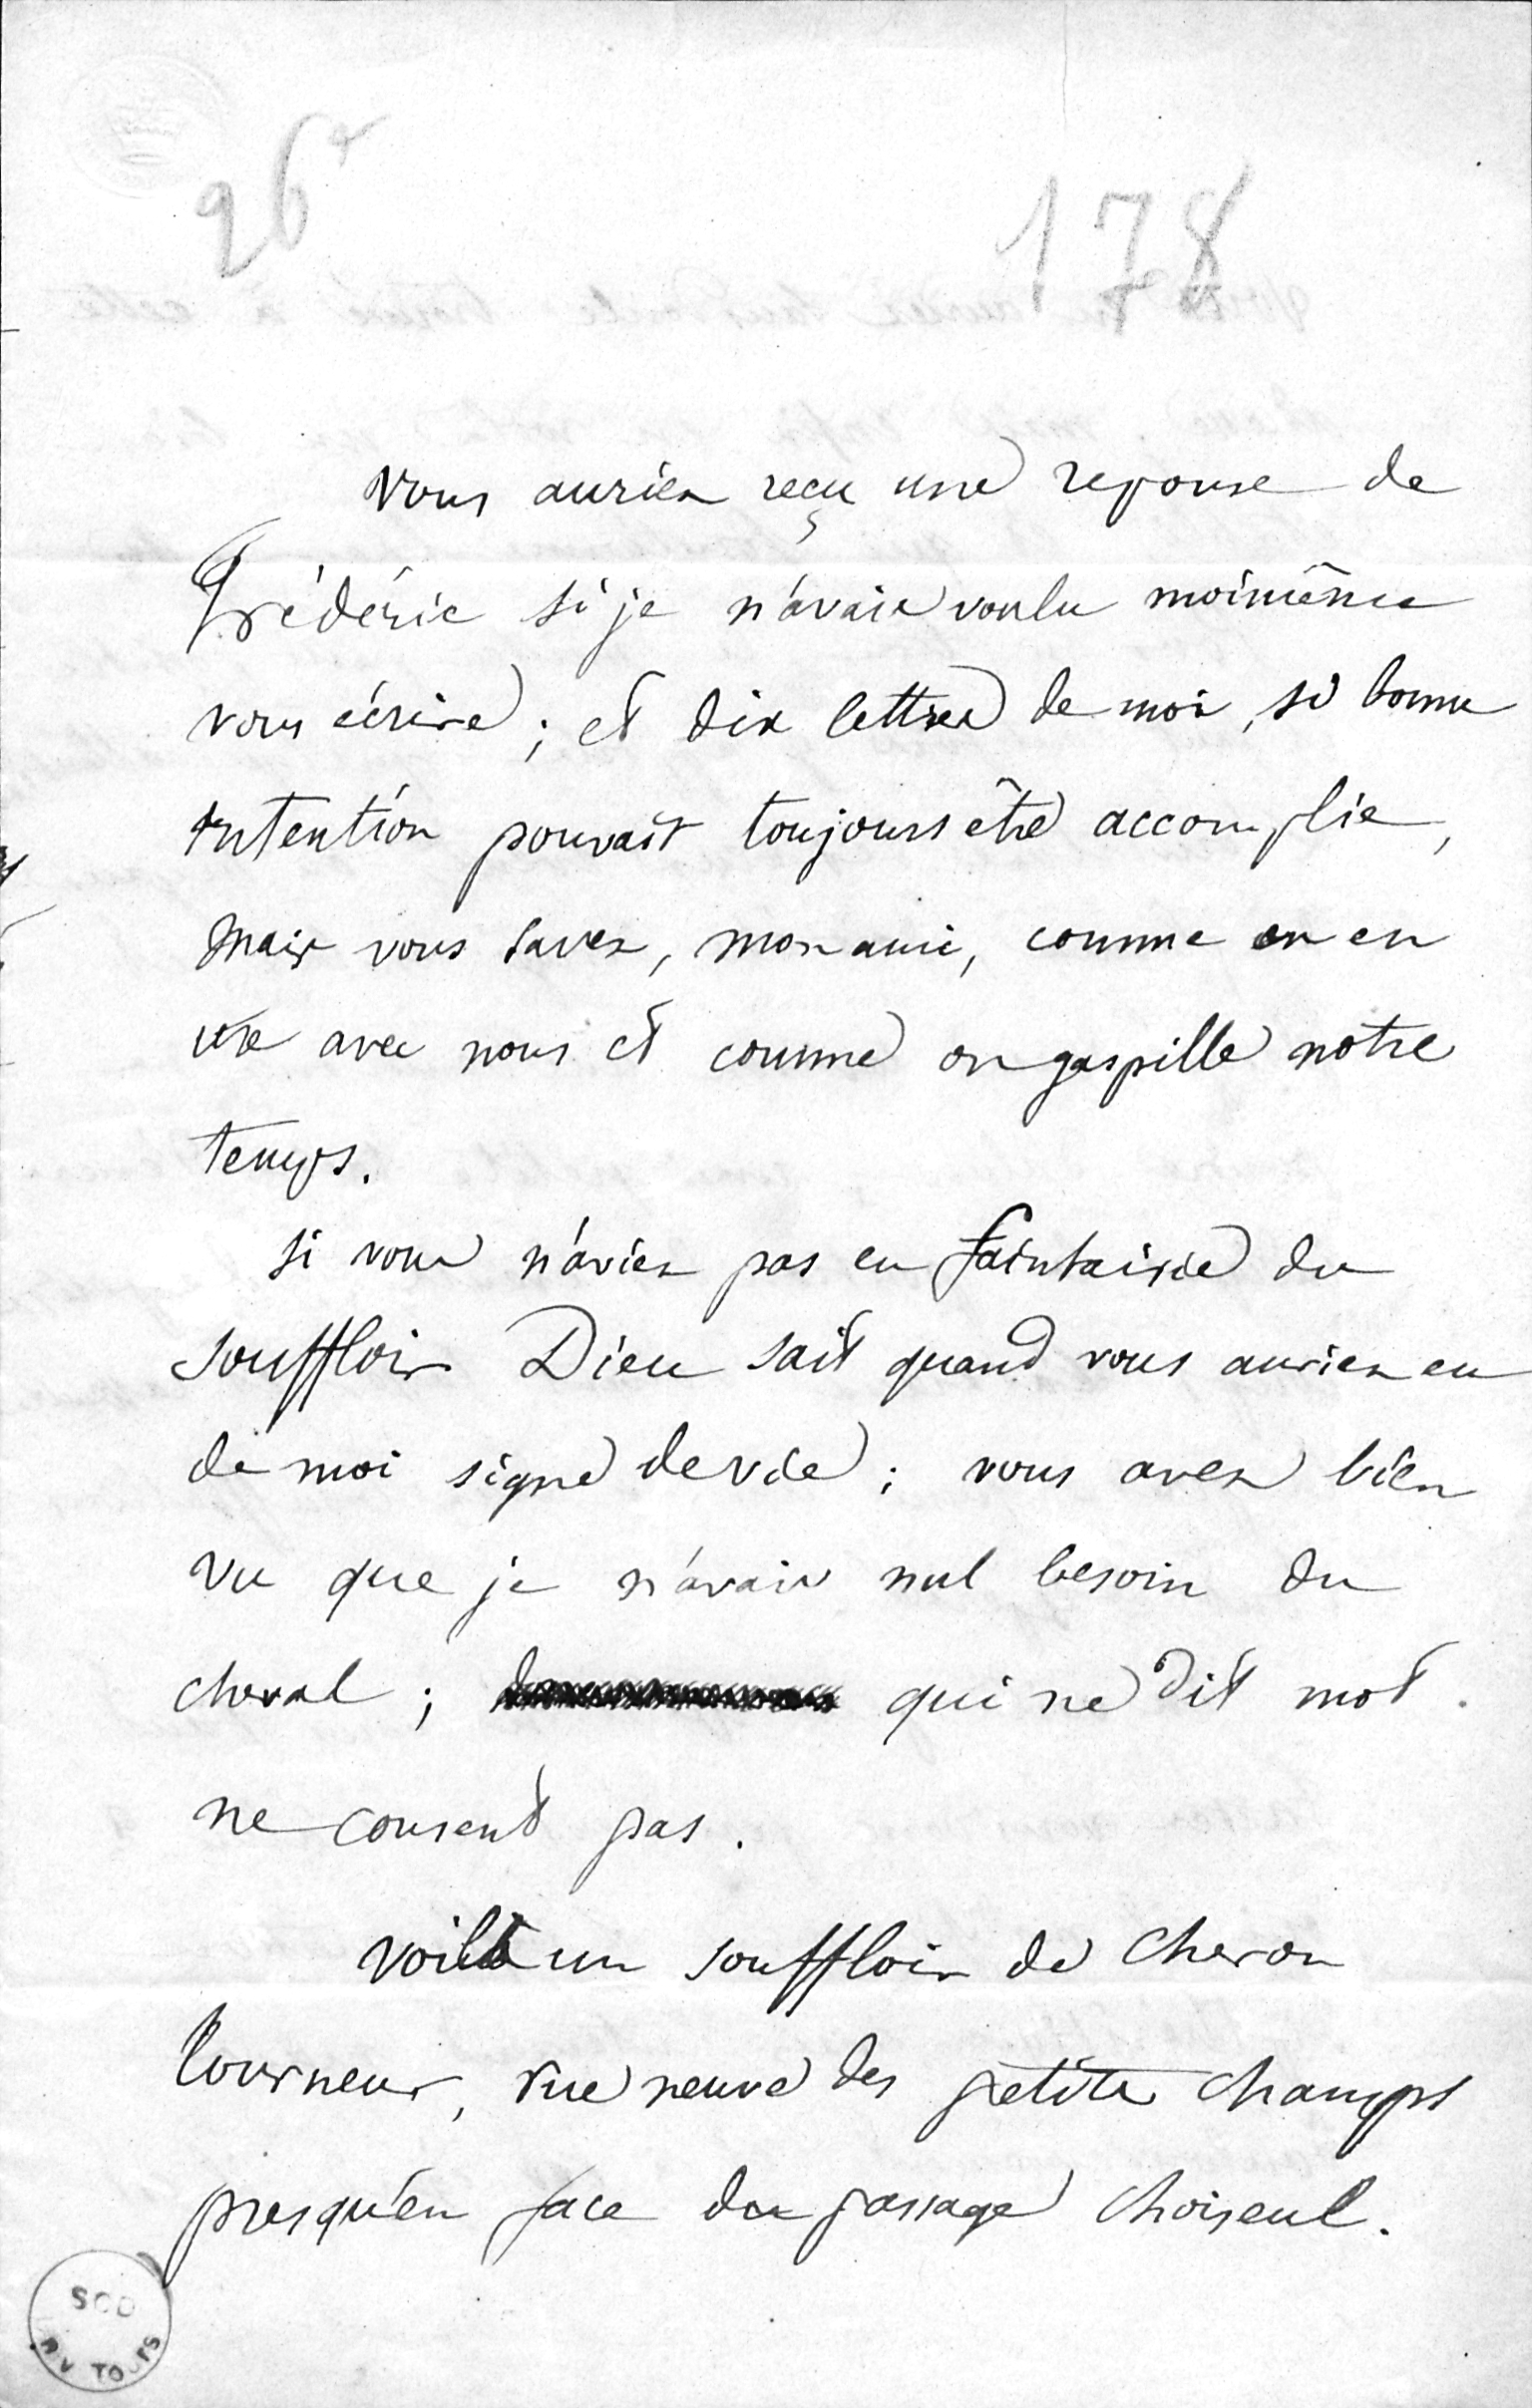 26
178
Vous auriez reçu une reponse de
Frédéric si je n'avais voulu moimême
vous écrire ; et dix lettres de moi, si bonne
intention pouvait toujours être accomplie,
Mais vous savez, mon ami, comme on en
use avec nous et comme on gaspille notre
temps.
si vous n'aviez pas eu faintaisie du
souffloir Dieu sait quand vous auriez eu
de moi signe de vie ; vous avez bien
vu que je n'avais nul besoin du
cheval ; qui ne dit mot
ne consent pas.
voilà un souffloir de Cheron
tourneur, rue neuve des petits champs
presqu'en face du passage choiseul.
SCD
UNIV TOURS